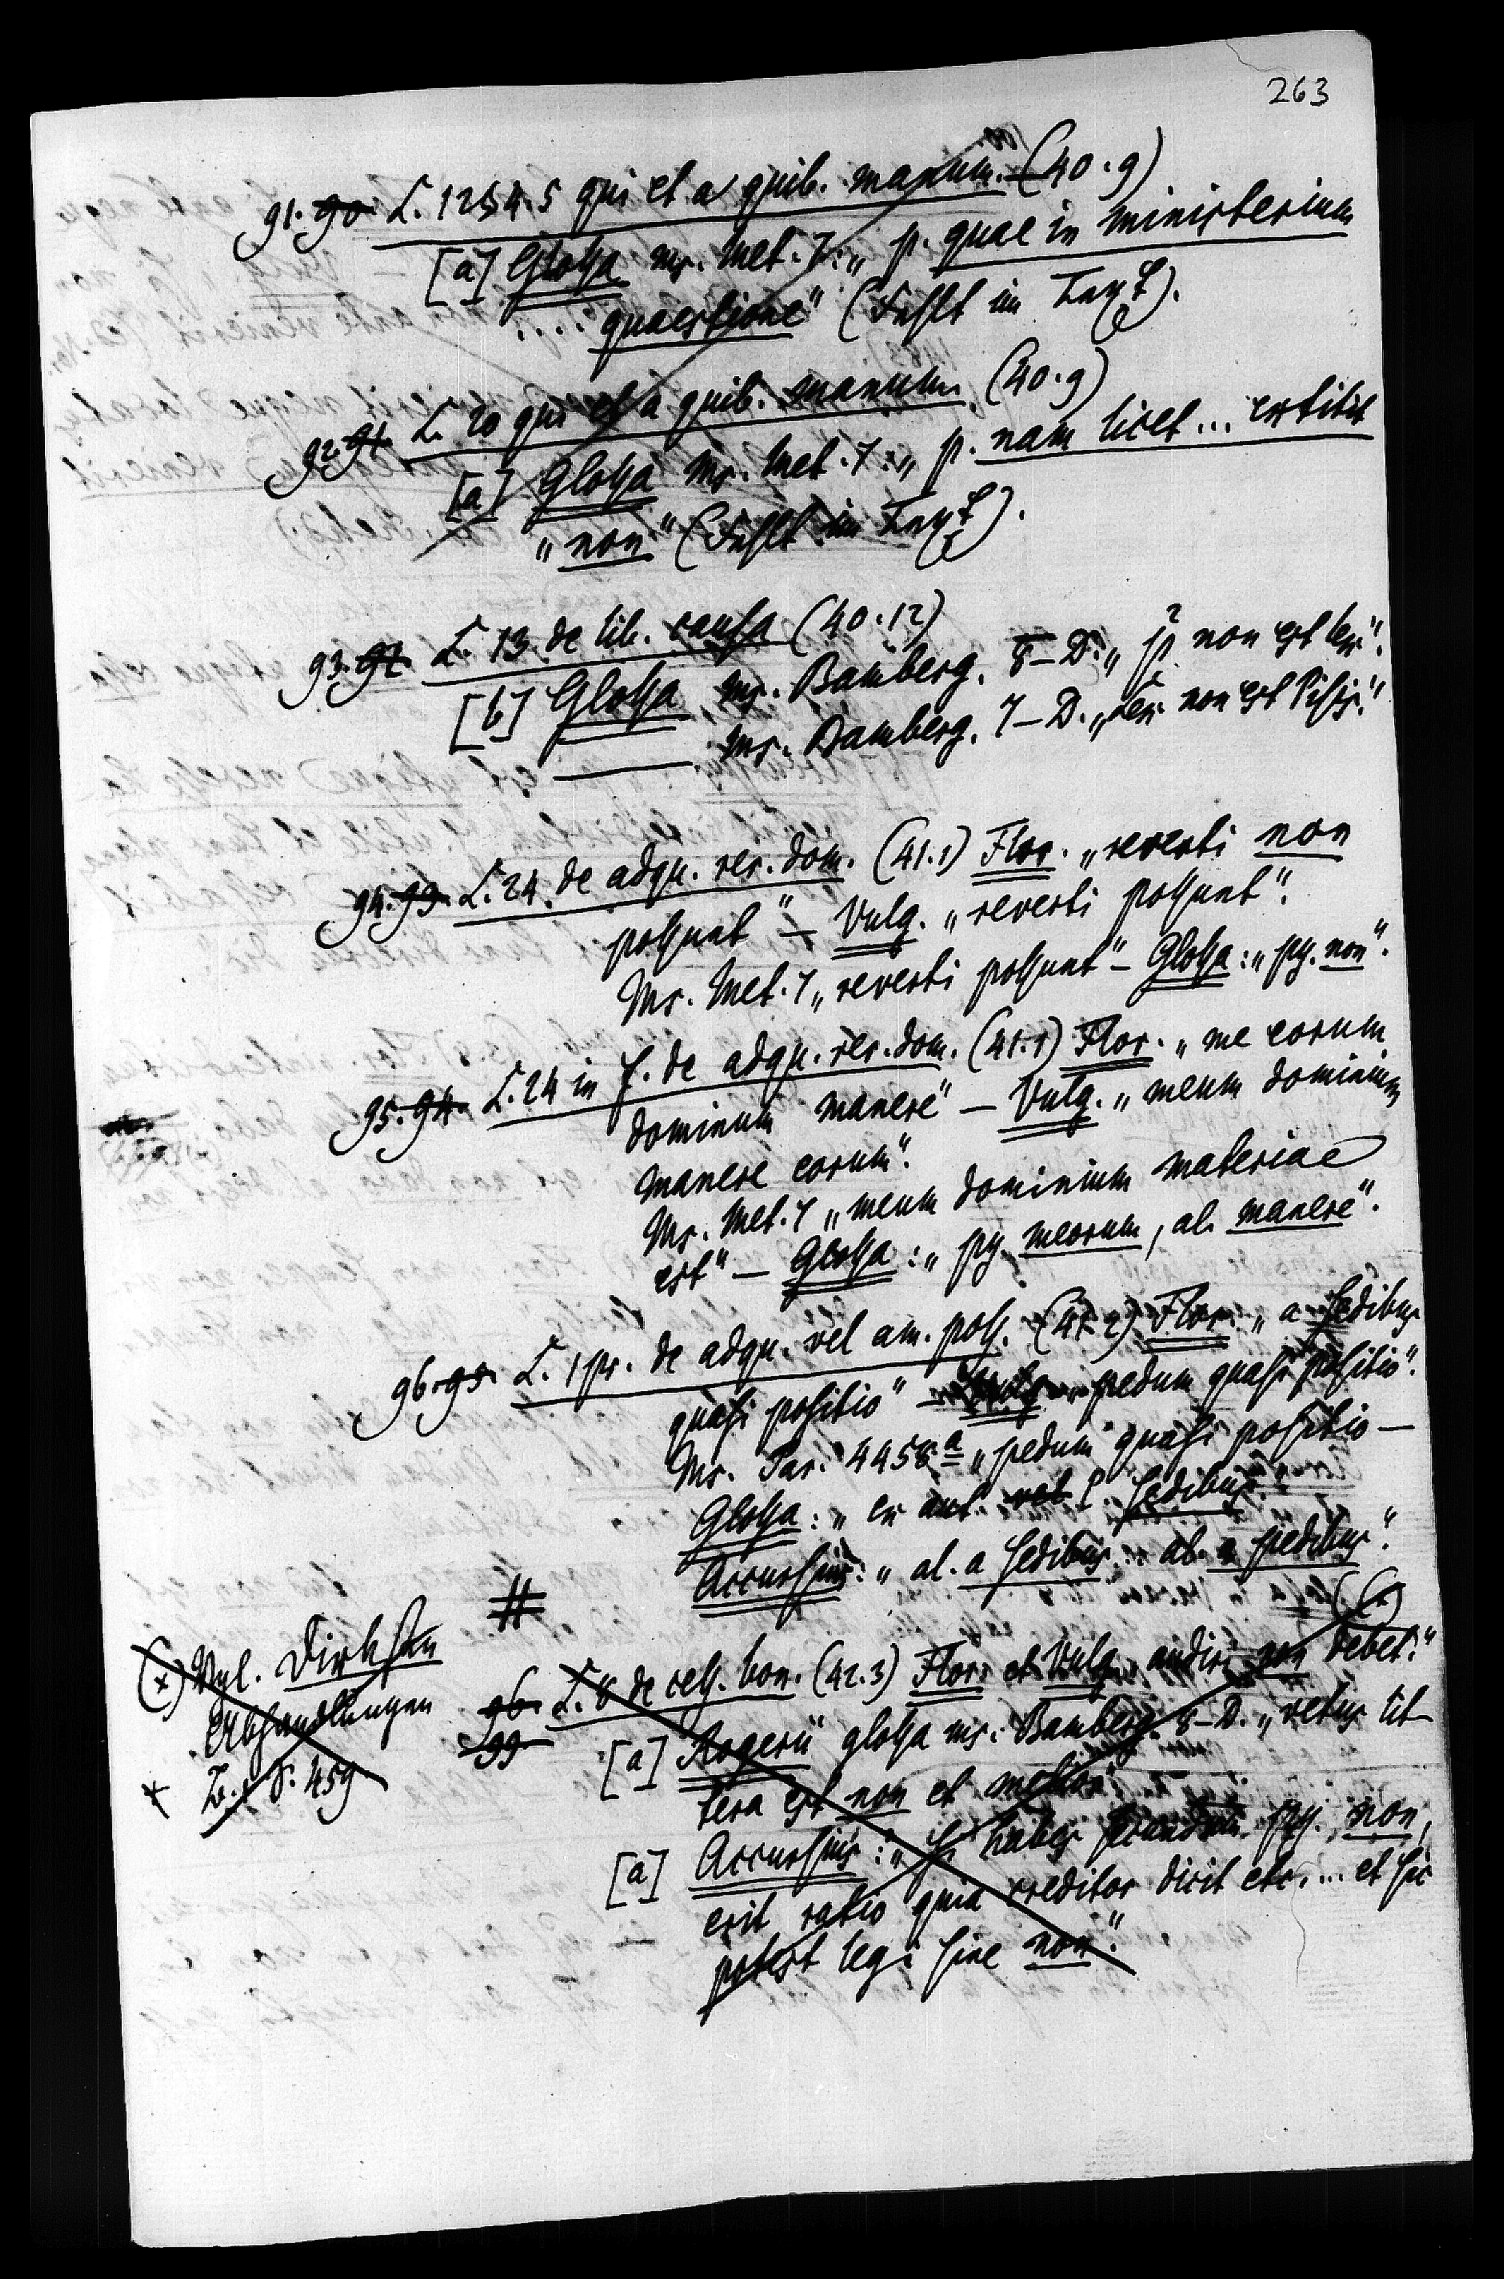 263
91. 90. L. 12 § 4. 5 qui et a quib. manum. (40. 9)
[a] Glossa ms. Met. 7: „p. quae in ministerium
quaestione" (Fehlt im Text).
92. 91. L. 20 qui et a quib. manum. (40. 9)
[a] Glossa ms. Met. 7: „p. nam licet ... extitit
„non" (Fehlt im Text).
93. 92. L. 13. de lib. causa (40. 12)
[b] Glossa ms. Bamberg. 8-D: „p non est ...".
ms. Bamberg. 7-D. „... non est Pisis."
94. 93. L. 24. de adqu. rer. dom. (41. 1) Flor. „reverti non
possunt" – Vulg. „reverti possunt".
Ms. Met. 7 „reverti possunt" – Glossa: „py. non".
95. 94. L. 24 in f. de adqu. rer. dom. (41. 1) Flor. „me eorum
dominum manere" – Vulg. „meum dominium
manere eorum".
Ms. Met. 7 „meum dominium materiae
est" – Glossa: „py meorum, al. manere".
96. 95. L. 1 pr. de adqu. vel am. poss. (41. 2) Flor. „a sedibus
quasi positio" – Vulg. „pedum quasi positio".
Ms. Par. 4458.a „pedum quasi positio –
Glossa: „en ant. vel l. sedibus."
Accursius: „al. a sedibus. al. a pedibus".
#
(x) Vgl. Dirksen
Abhandlungen
B. 1 S. 459
96. L. 8 de cess. bon. (42. 3) Flor. et Vulg. „audiri non debet." (x)
99
[a] Rogerii glossa ms. Bamberg. 8-D. „vetus lit-
tera est non et melior".
[a] Accursius: „si habes secundum py. non,
erit ratio quia creditor dicit etc. ... et sic
potest legi sine non".